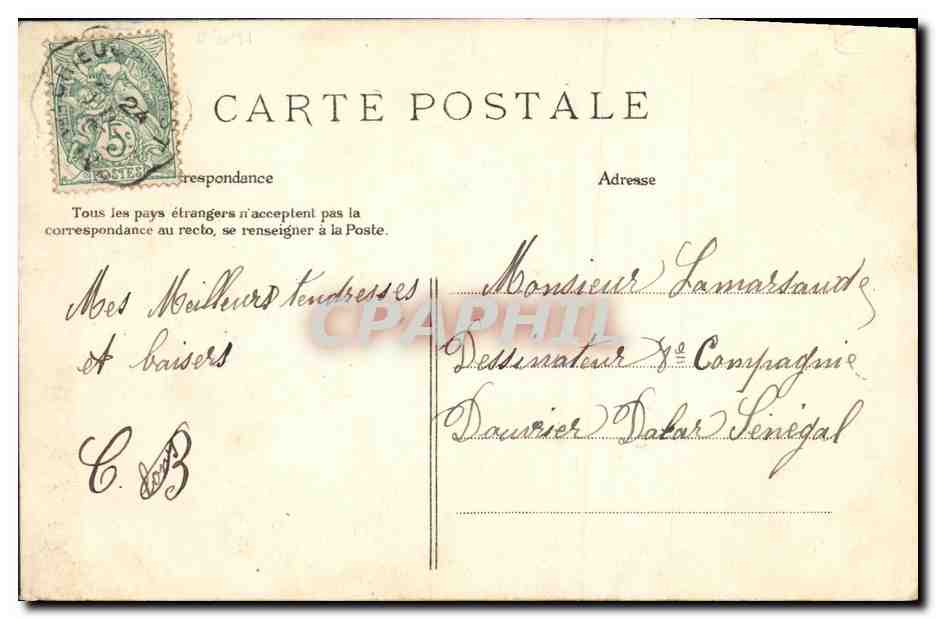 CARTE POSTALE
5c
POSTES
respondance
Adresse
Tous les pays étrangers n'acceptent pas la
correspondance au recto, se renseigner à la Poste.
Mes Meilleurs tendresses
et baisers
C. B
Monsieur Lamarsaude
Dessinateur 8e Compagnie
Douvrier Dakar Sénégal
CPAPHIL